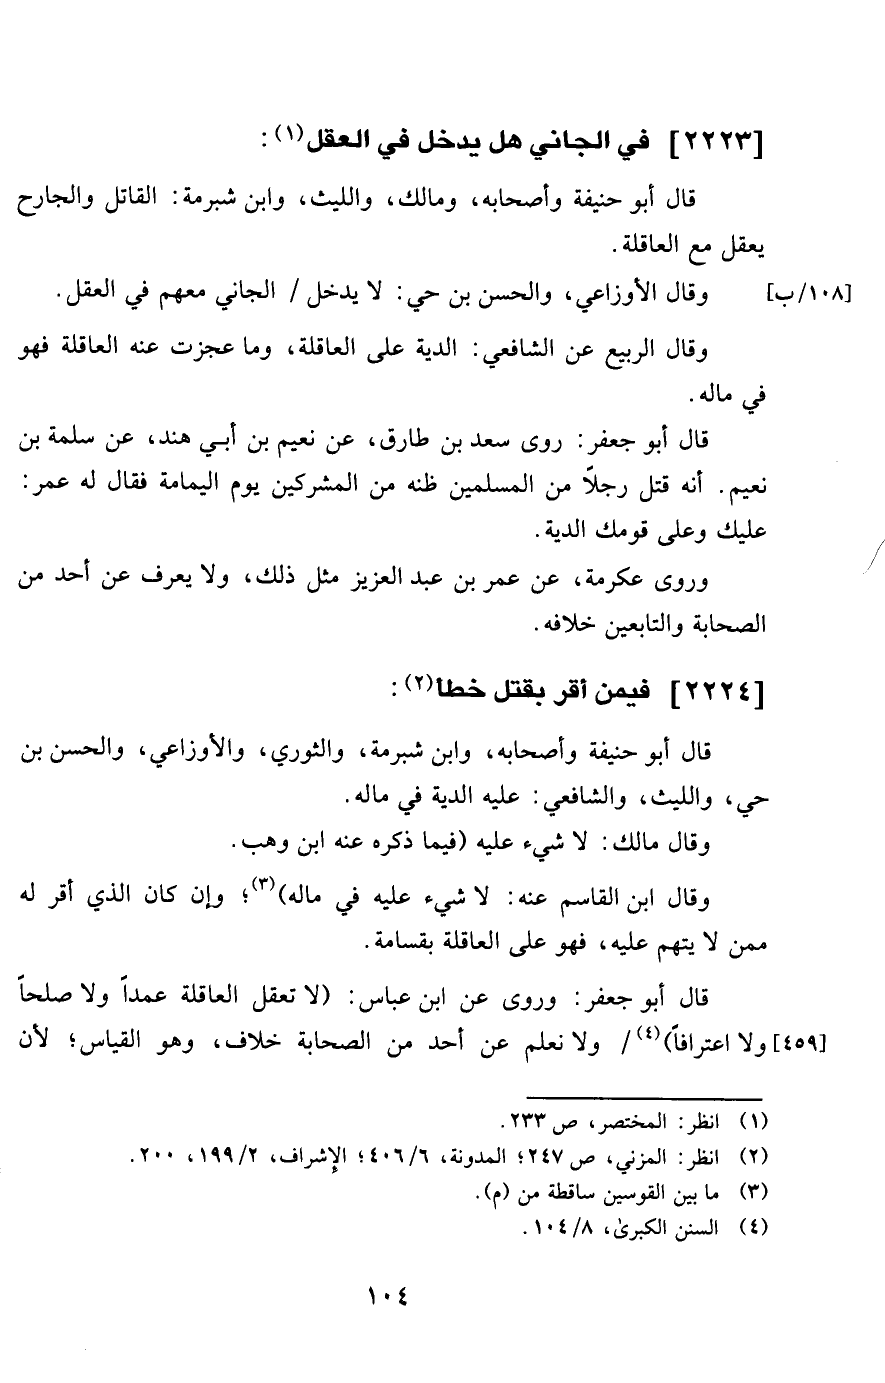 [٢٢٢٣] في الجاني هل يدخل في العقل(١) :
قال أبو حنيفة وأصحابه، ومالك، والليث، وابن شبرمة: القاتل والجارح
يعقل مع العاقلة.
[١٠٨/ب] وقال الأوزاعي، والحسن بن حي: لا يدخل / الجاني معهم في العقل.
وقال الربيع عن الشافعي: الدية على العاقلة، وما عجزت عنه العاقلة فهو
في ماله.
قال أبو جعفر: روى سعد بن طارق، عن نعيم بن أبـي هند، عن سلمة بن
نعيم. أنه قتل رجلاً من المسلمين ظنه من المشركين يوم اليمامة فقال له عمر:
عليك وعلى قومك الدية.
وروى عكرمة، عن عمر بن عبد العزيز مثل ذلك، ولا يعرف عن أحد من
الصحابة والتابعين خلافه.
[٢٢٢٤] فيمن أقر بقتل خطأ(٢) :
قال أبو حنيفة وأصحابه، وابن شبرمة، والثوري، والأوزاعي، والحسن بن
حي، والليث، والشافعي: عليه الدية في ماله.
وقال مالك: لا شيء عليه (فيما ذكره عنه ابن وهب.
وقال ابن القاسم عنه: لا شيء عليه في ماله)(٣)؛ وإن كان الذي أقر له
ممن لا يتهم عليه، فهو على العاقلة بقسامة.
قال أبو جعفر: وروى عن ابن عباس: (لا تعقل العاقلة عمداً ولا صلحاً
[٤٥٩] ولا اعترافاً)(٤) / ولا نعلم عن أحد من الصحابة خلاف، وهو القياس؛ لأن
(١) انظر: المختصر، ص ٢٣٣.
(٢) انظر: المزني، ص ٢٤٧؛ المدونة، ٤٠٦/٦؛ الإشراف، ١٩٩/٢، ٢٠٠.
(٣) ما بين القوسين ساقطة من (م).
(٤) السنن الكبرىٰ، ١٠٤/٨.
١٠٤